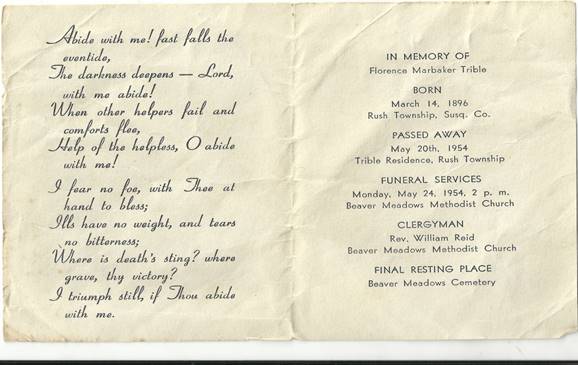 Abide with me! fast falls the
eventide,
The darkness deepens — Lord,
with me abide!
When other helpers fail and
comforts flee,
Help of the helpless, O abide
with me!
I fear no foe, with Thee at
hand to bless;
Ills have no weight, and tears
no bitterness;
Where is death's sting? where
grave, thy victory?
I triumph still, if Thou abide
with me.
IN MEMORY OF
Florence Marbaker Trible
BORN
March 14, 1896
Rush Township, Susq. Co.
PASSED AWAY
May 20th, 1954
Trible Residence, Rush Township
FUNERAL SERVICES
Monday, May 24, 1954, 2 p. m.
Beaver Meadows Methodist Church
CLERGYMAN
Rev. William Reid
Beaver Meadows Methodist Church
FINAL RESTING PLACE
Beaver Meadows Cemetery